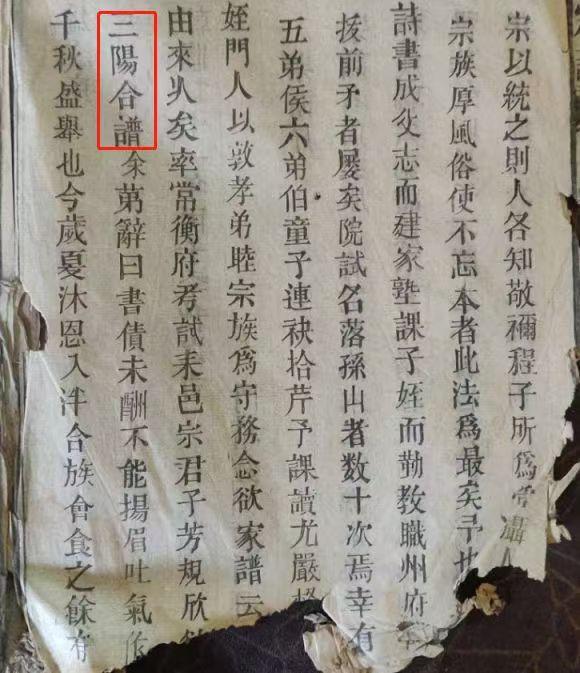 宗以統之則人各知敬禰程子所爲常灄
宗族厚風俗使不忘本者此法爲最矣予也
詩書成父志而建家塾課子姪而勤教職州府
拔前矛者屢矣院試名落孫山者数十次焉幸有
五弟侯六弟伯童子連袂拾芹予課讀尤嚴
姪門人以敦孝弟睦宗族爲守務念欲家譜云
由來乆矣率常衡府考試耒邑宗君子芳規欣
二陽合譜余苐辭曰書債未酬不能揚眉吐氣
千秋盛舉也今歲夏沐恩入泮合族會食之餘有